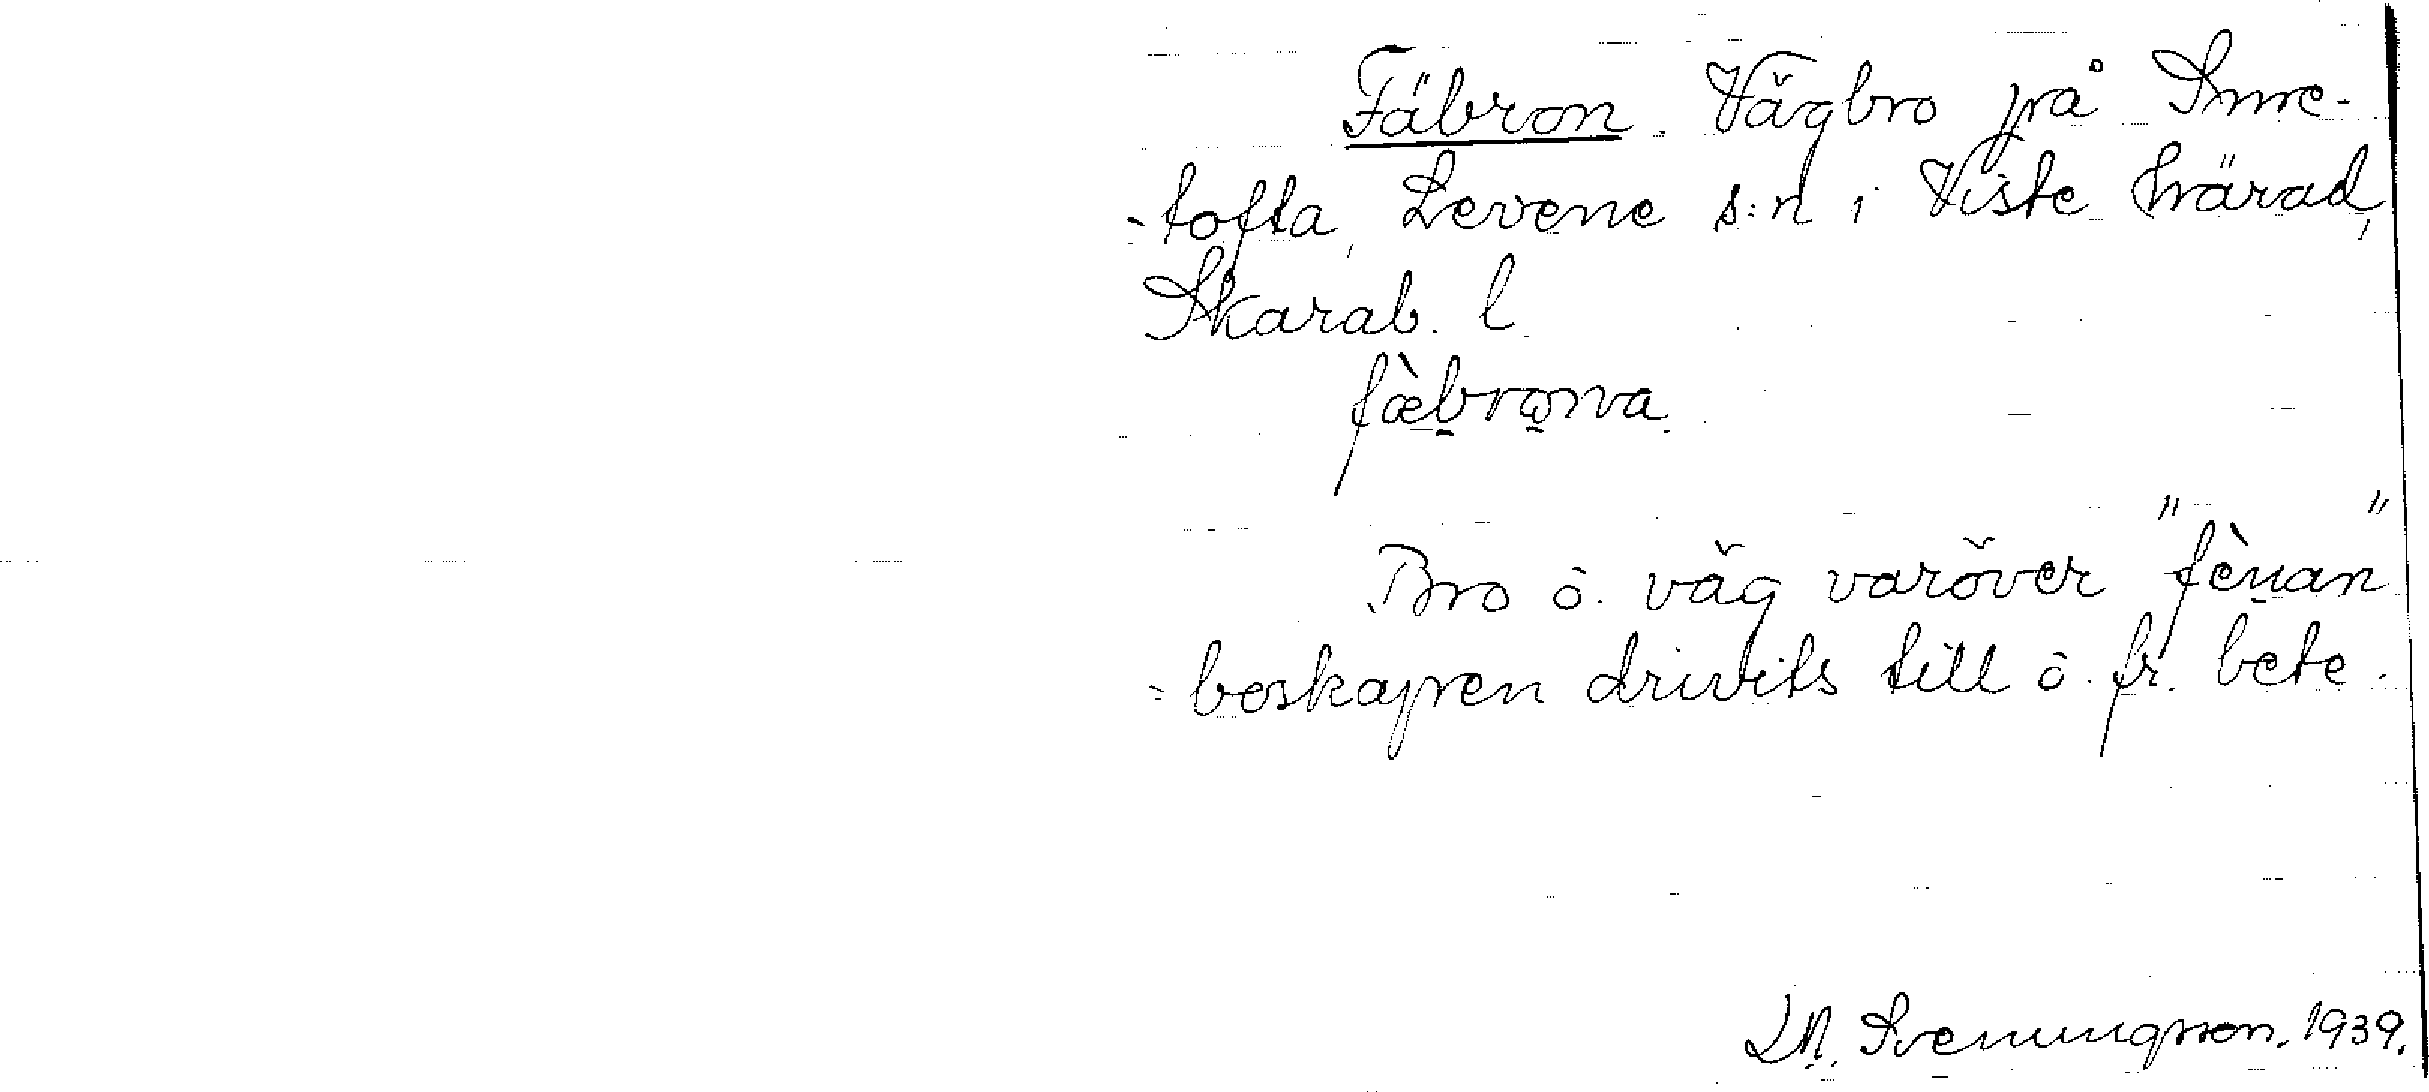 Fäbron. Vägbro på Sme-
-tofta, Levene s:n i Viste härad,
Skarab. l
fàebrowa.
Bro o. väg varöver "fèuan"
= boskapen drivits till o. fr. bete.
Svenungsson. 1939.